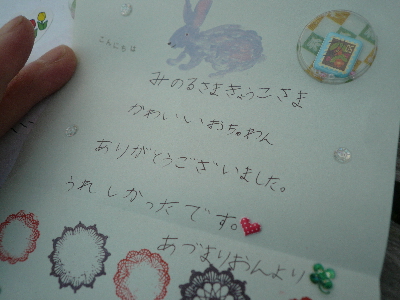 こんにちは
みのるさまきょうこさま
かわいいおちゃわん
ありがとうございました。
うれしかったです。
あづまりおんより